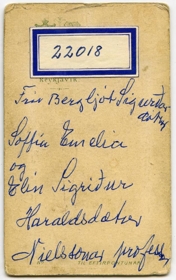 REYKJAVIK
22018
Frú Bergljót Sigurðar
dóttir
Soffía Emelía
og
Elín Sigríður
Haraldsdætur
Níelssonar profess